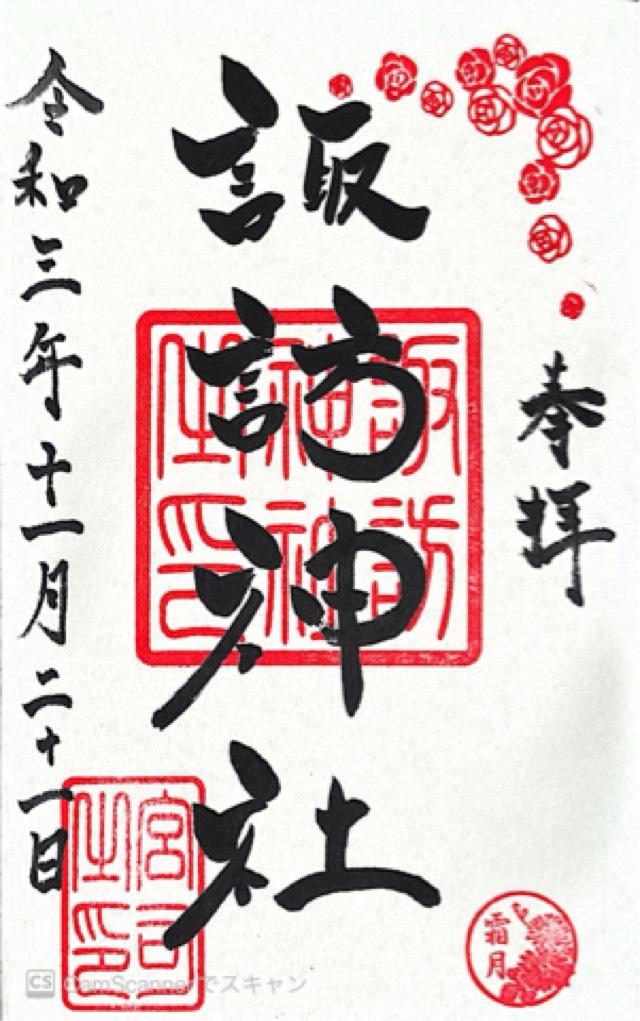 奉拝
諏訪神社
諏訪神社之印
令和三年十一月二十一日
宮司之印
霜月
CS CamScannerでスキャン